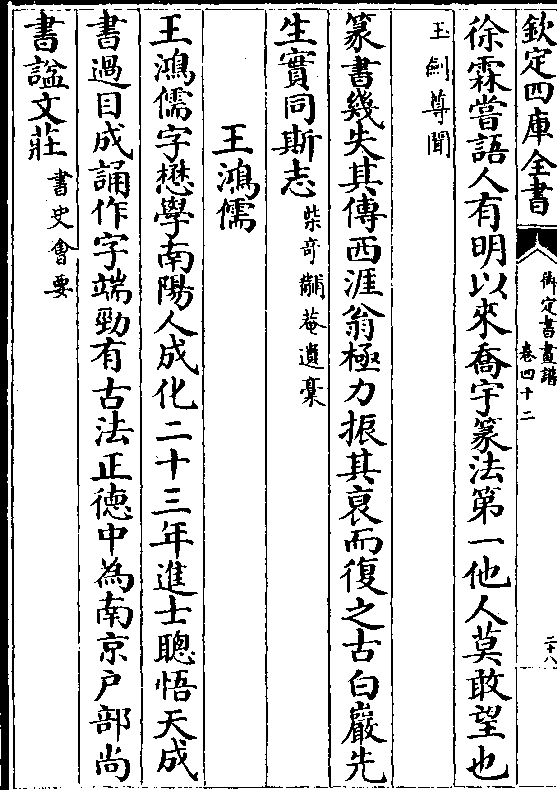 欽定四庫全書
御定書畫譜
卷四十二
二十八
徐霖嘗語人有明以來喬宇篆法第一他人莫敢望也
玉劍尊聞
篆書幾失其傳西涯翁極力振其衰而復之古白巖先
生實同斯志柴奇黼菴遺藁
王鴻儒
王鴻儒字懋學南陽人成化二十三年進士聰悟天成
書過目成誦作字端勁有古法正德中為南京户部尚
書諡文莊書史會要